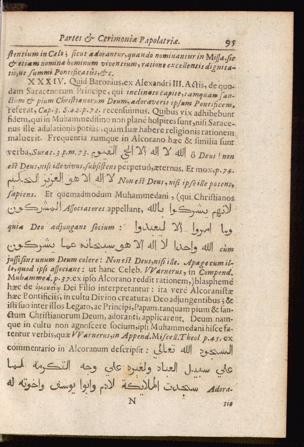 Partes & Cerimoniæ Papolatriæ. 95
stentium in Cœlis; sicut adorantur, quando nominantur in Missa, sic
& etiam nomina hominum viventium, ratione excellentis dignita-
tis, ut summi Pontificatus, &c.
XXXIV. Quid Baronius, ex Alexandri III. Actis, de quo-
dam Saracenorum Principe, qui inclinato capite, tamquam san-
ctum & pium Christianorum Deum, adoraverit ipsum Pontificem,
referat, Cap. 5. §.22. p.72. recensuimus. Quibus vix adhibebunt
fidem, qui in Muhammedismo non plane hospites sunt, nisi Sarace-
nus ille adulationis potius, quam suæ habere religionis rationem
maluerit. Frequentia namque in Alcorano hæc & similia sunt
verba, Surat. 3. p.m. 73. الله لا اله الا الحي القيوم ô Deus! non
est Deus, nisi ille vivus, subsistens perpetuò, æternus. Et mox, p. 74.
لا اله الا هو العزيز الحكيم Non est Deus, nisi ipse ille potens,
sapiens. Et quemadmodum Muhammedani, (qui Christianos
المشركون Associatores appellant, لانهم يشركوا بالله
quia Deo adjungant socium: وما امروا الا ليعبدوا
الله واحدا لا اله الا هو سبحانه عما يشركون cùm
jussi sint unum Deum colere: Non est Deus, nisi ille. Apage eum il-
lis, quod ipsi associant: ut hanc Celeb. VVarnerus, in Compend.
Muhammed. p. 27. ex ipso Alcorano reddit rationem,) blasphemè
hæc de Dei Filio interpretantur: ita verè Alcoranistæ
hæc Pontificiis, in cultu Divino creaturas Deo adjungentibus; &
isti suo inter illos Legato, ac Principi, Papam, tanquam pium & san-
ctum Christianorum Deum, adoranti, applicarent, Deum nam-
que in cultu non agnoscere socium, ipsi Muhammedani hisce fa-
tentur verbis, quæ VVarnerus, in Append. Miscell. Theol. p. 45. ex
commentario in Alcoranum descripsit: السجود الله تعالى
على سبيل العباد ولغيره على وجه التكرمة كما
سجدت الملايكة لادم وابوا يوسف واخوته له Adora-
N tio